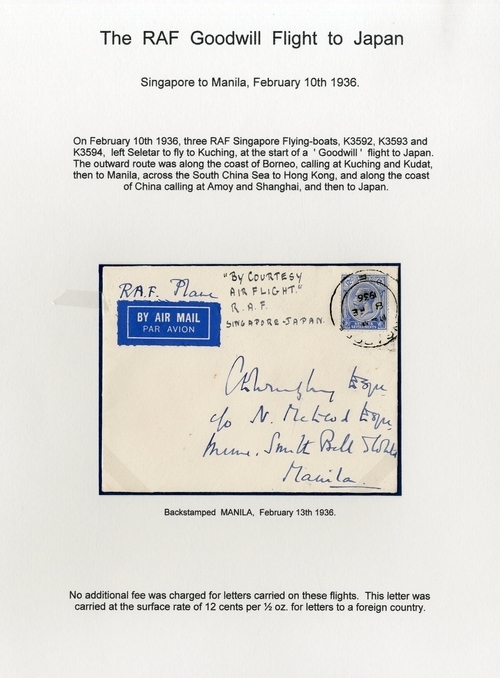 The RAF Goodwill Flight to Japan
Singapore to Manila, February 10th 1936.
On February 10th 1936, three RAF Singapore Flying-boats, K3592, K3593 and
K3594, left Seletar to fly to Kuching, at the start of a ' Goodwill ' flight to Japan.
The outward route was along the coast of Borneo, calling at Kuching and Kudat,
then to Manila, across the South China Sea to Hong Kong, and along the coast
of China calling at Amoy and Shanghai, and then to Japan.
R.A.F. Plane
"BY COURTESY
AIR FLIGHT."
R.A.F.
SINGAPORE-JAPAN.
BY AIR MAIL
PAR AVION
1936
Esqr.
c/o N. McLeod Esqr.
Smith Bell
Manila.
Backstamped MANILA, February 13th 1936.
No additional fee was charged for letters carried on these flights. This letter was
carried at the surface rate of 12 cents per ½ oz. for letters to a foreign country.